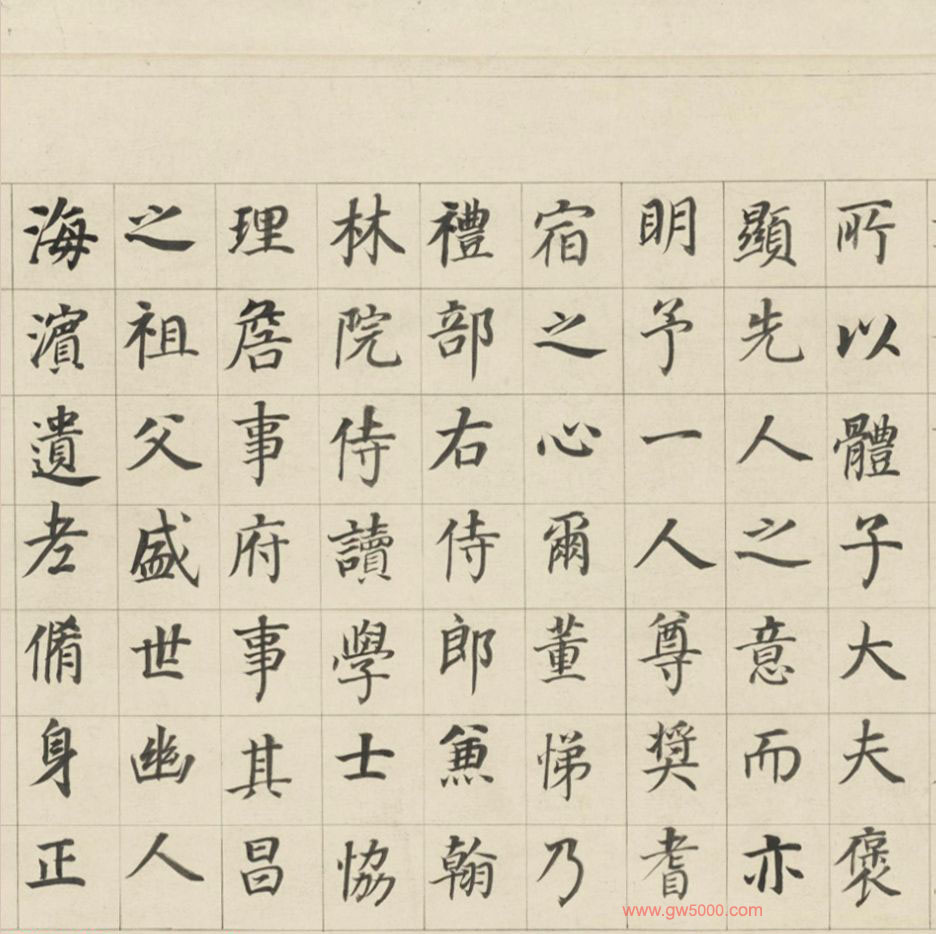 所以體子大夫褒
顯先人之意而亦
明予一人尊奨耆
宿之心爾董悌乃
禮部右侍郎兼翰
林院侍讀學士協
理詹事府事其昌
之祖父盛世幽人
海濵遺老脩身正
www.gw5000.com